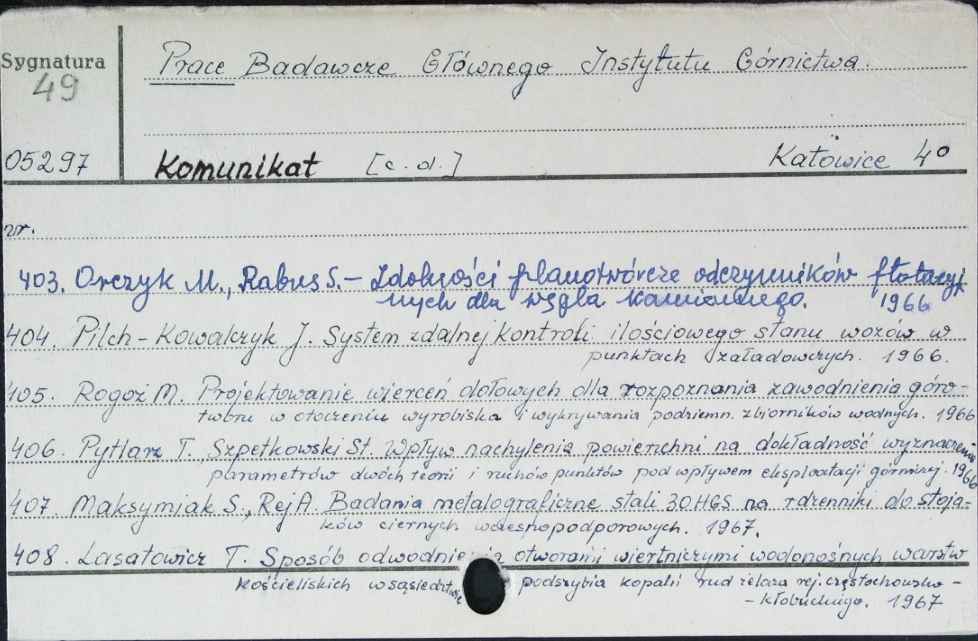 Sygnatura
49
Prace Badawcze Głównego Instytutu Górnictwa.
05297
Komunikat [c.d.] Katowice 4°
nr.
403. Orczyk M., Rabus S. - Zdolności pianotwórcze odczynników flotacyj
nych dla węgla kamiennego. 1966
404. Pilch-Kowalczyk J. System zdalnej kontroli ilościowego stanu wozów w
punktach załadowczych. 1966.
405. Rogoż M. Projektowanie wierceń dołowych dla rozpoznania zawodnienia góro-
tworu w otoczeniu wyrobiska i wykrywania podziemn. zbiorników wodnych. 1966
406. Pytlarz T., Szpetkowski St. Wpływ nachylenia powierzchni na dokładność wyznaczenia
parametrów dwóch teorii i ruchów punktów pod wpływem eksploatacji górniczej. 1966
407. Maksymiak S., Rej A. Badania metalograficzne stali 30HGS na rdzenniki do stoja-
ków ciernych wolnopodporowych. 1967.
408. Lasatowicz T. Sposób odwodnienia otworami wiertniczymi wodonośnych warstw
kościeliskich w sąsiedztwie podszybia kopalń rud żelaza rej. częstochowsko-
-kłobuckiego. 1967